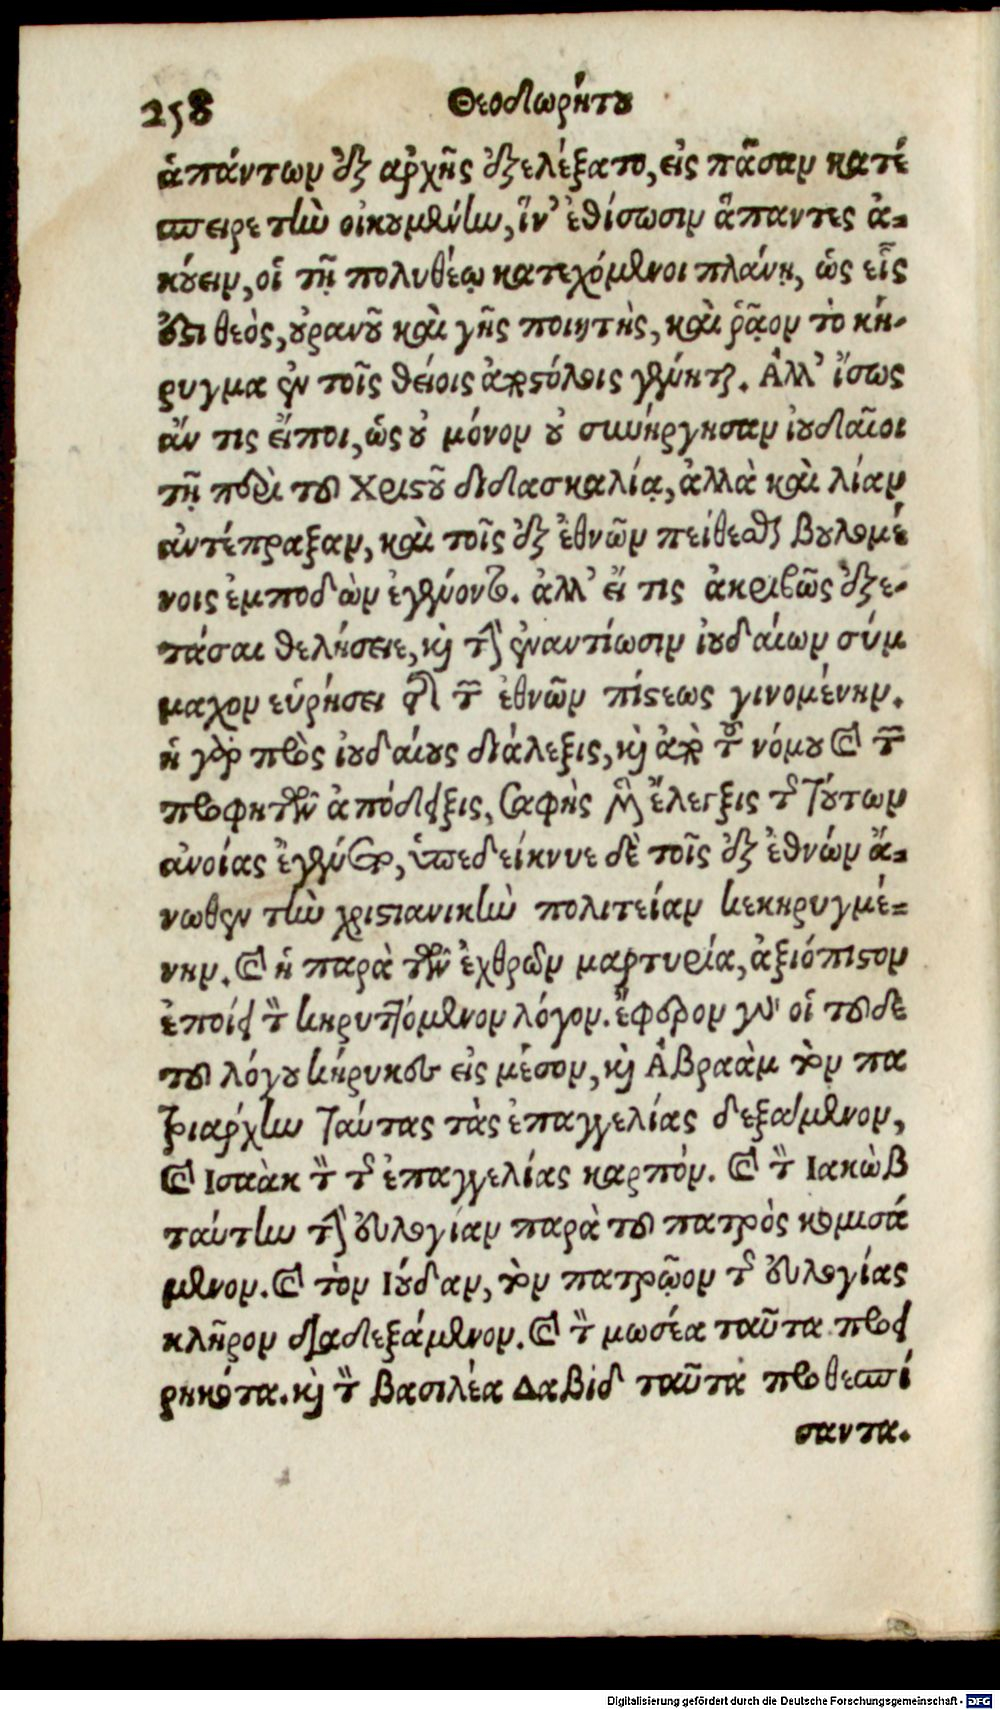 258 Θεοδωρήτου
ἁπάντων ἐξ ἀρχῆς ἐξελέξατο, εἰς πᾶσαν κατέ
σπειρε τὴν οἰκουμένην, ἵν' ἐθίσωσιν ἅπαντες ἀ-
κούειν, οἱ τῇ πολυθέῳ κατεχόμενοι πλάνῃ, ὡς εἷς
ἐστι θεὸς, οὐρανοῦ καὶ γῆς ποιητὴς, καὶ ῥᾷον τὸ κή-
ρυγμα ἐν τοῖς θείοις ἀποστόλοις γένηται. Ἀλλ' ἴσως
ἄν τις εἴποι, ὡς οὐ μόνον οὐ συνήργησαν ἰουδαῖοι
τῇ περὶ τοῦ Χριστοῦ διδασκαλίᾳ, ἀλλὰ καὶ λίαν
ἀντέπραξαν, καὶ τοῖς ἐξ ἐθνῶν πείθεσθαι βουλομέ
νοις ἐμποδὼν ἐγένοντο. ἀλλ' εἴ τις ἀκριβῶς ἐξε-
τάσαι θελήσειε, καὶ τὴν ἐναντίωσιν ἰουδαίων σύμ
μαχον εὑρήσει ἐπὶ τῆς ἐθνῶν πίστεως γινομένην.
ἡ γὰρ πρὸς ἰουδαίους διάλεξις, καὶ ἀπὸ τοῦ νόμου καὶ τῶν
προφητῶν ἀπόδειξις, σαφὴς μὲν ἔλεγξις τῆς τούτων
ἀνοίας ἐγένετο, ὑπεδείκνυε δὲ τοῖς ἐξ ἐθνών ἄ-
νωθεν τὴν χριστιανικὴν πολιτείαν κεκηρυγμέ-
νην. καὶ ἡ παρὰ τῶν ἐχθρῶν μαρτυρία, ἀξιόπιστον
ἐποίει τὸν κηρυττόμενον λόγον. ἔφερον γὰρ οἱ τοῦδε
τοῦ λόγου κήρυκες εἰς μέσον, καὶ Ἀβραὰμ τὸν πα
τριάρχην ταύτας τὰς ἐπαγγελίας δεξάμενον,
καὶ Ισαὰκ τὸν τῆς ἐπαγγελίας καρπόν. καὶ τὸν Ιακὼβ
ταύτην τὴν εὐλογίαν παρὰ τοῦ πατρὸς κομισά
μενον. καὶ τὸν Ιούδαν, τὸν πατρῷον τῆς εὐλογίας
κλῆρον διαδεξάμενον. καὶ τὸν μωσέα ταῦτα προει
ρηκότα. καὶ τὸν βασιλέα Δαβὶδ ταῦτα προθεσπί
σαντα.
Digitalisierung gefördert durch die Deutsche Forschungsgemeinschaft - DFG